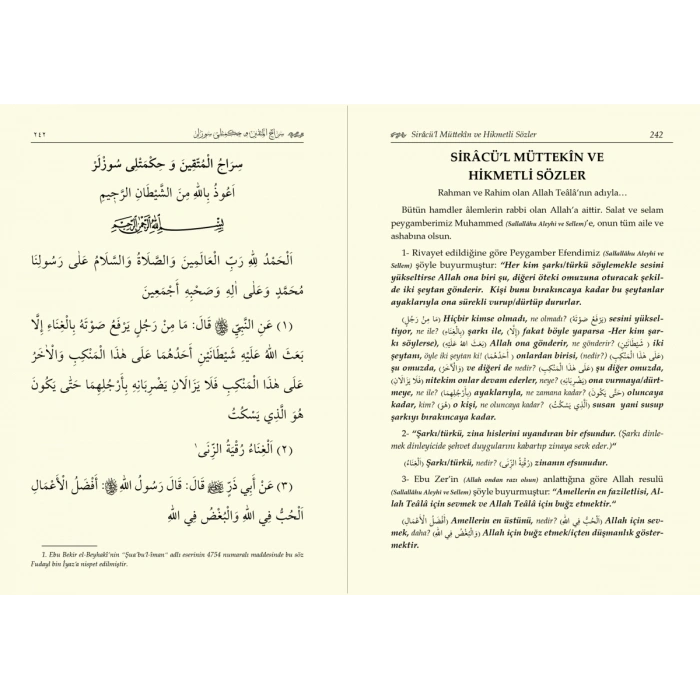 ٢٤٢ سِرَاجُ الْمُتَّقِينَ وَ حِكْمَتْلِى سُوزْلَرْ
سِرَاجُ الْمُتَّقِينَ وَ حِكْمَتْلِى سُوزْلَرْ
اَعُوذُ بِاللهِ مِنَ الشَّيْطَانِ الرَّجِيمِ
بِسْمِ اللهِ الرَّحْمٰنِ الرَّحِيمِ
اَلْحَمْدُ لِلّٰهِ رَبِّ الْعَالَمِينَ وَالصَّلَاةُ وَالسَّلَامُ عَلٰى رَسُولِنَا
مُحَمَّدٍ وَعَلٰى اٰلِهِ وَصَحْبِهِ أَجْمَعِينَ
(١) عَنِ النَّبِيِّ ﷺ قَالَ: مَا مِنْ رَجُلٍ يَرْفَعُ صَوْتَهُ بِالْغِنَاءِ إِلَّا
بَعَثَ اللهُ عَلَيْهِ شَيْطَانَيْنِ أَحَدُهُمَا عَلٰى هٰذَا الْمَنْكِبِ وَالْاٰخَرُ
عَلٰى هٰذَا الْمَنْكِبِ فَلَا يَزَالَانِ يَضْرِبَانِهِ بِأَرْجُلِهِمَا حَتّٰى يَكُونَ
هُوَ الَّذِي يَسْكُتُ
(٢) اَلْغِنَاءُ رُقْيَةُ الزِّنٰى ¹
(٣) عَنْ أَبِي ذَرٍّ ﷺ قَالَ: قَالَ رَسُولُ اللهِ ﷺ: أَفْضَلُ الْأَعْمَالِ
اَلْحُبُّ فِي اللهِ وَالْبُغْضُ فِي اللهِ
1. Ebu Bekir el-Beyhakî'nin "Şua'bu'l-îman" adlı eserinin 4754 numaralı maddesinde bu söz
Fudayl bin İyaz'a nispet edilmiştir.
Sirâcü'l Müttekîn ve Hikmetli Sözler 242
SİRÂCÜ'L MÜTTEKÎN VE
HİKMETLİ SÖZLER
Rahman ve Rahim olan Allah Teâlâ'nın adıyla…
Bütün hamdler âlemlerin rabbi olan Allah'a aittir. Salat ve selam
peygamberimiz Muhammed (Sallallâhu Aleyhi ve Sellem)'e, onun tüm aile ve
ashabına olsun.
1- Rivayet edildiğine göre Peygamber Efendimiz (Sallallâhu Aleyhi ve
Sellem) şöyle buyurmuştur: "Her kim şarkı/türkü söylemekle sesini
yükseltirse Allah ona biri şu, diğeri öteki omuzuna oturacak şekil-
de iki şeytan gönderir. Kişi bunu bırakıncaya kadar bu şeytanlar
ayaklarıyla ona sürekli vurup/dürtüp dururlar.
(مَا مِنْ رَجُلٍ) Hiçbir kimse olmadı, ne olmadı? (يَرْفَعُ صَوْتَهُ) sesini yüksel-
tiyor, ne ile? (بِالْغِنَاءِ) şarkı ile, (إِلَّا) fakat böyle yaparsa -Her kim şar-
kı söylerse), (بَعَثَ اللهُ عَلَيْهِ) Allah ona gönderir, ne gönderir? (شَيْطَانَيْنِ) iki
şeytanı, öyle iki şeytan ki! (أَحَدُهُمَا) onlardan birisi, (nedir? (عَلٰى هٰذَا الْمَنْكِبِ)
şu omuzda, (وَالْاٰخَرُ) ve diğeri de nedir? (عَلٰى هٰذَا الْمَنْكِبِ) şu diğer omuzda,
(فَلَا يَزَالَانِ) nitekim onlar devam ederler, neye? (يَضْرِبَانِهِ) ona vurmaya/dürt-
meye, ne ile? (بِأَرْجُلِهِمَا) ayaklarıyla, ne zamana kadar? (حَتّٰى يَكُونَ) oluncaya
kadar, kim? (هُوَ) o kişi, ne oluncaya kadar? (الَّذِي يَسْكُتُ) susan yani susup
şarkıyı bırakıncaya kadar.
2- "Şarkı/türkü, zina hislerini uyandıran bir efsundur. (Şarkı dinle-
mek dinleyicide şehvet duygularını kabartıp zinaya sevk eder.)"
(اَلْغِنَاءُ) Şarkı/türkü, nedir? (رُقْيَةُ الزِّنٰى) zinanın efsunudur.
3- Ebu Zer'in (Allah ondan razı olsun) anlattığına göre Allah resulü
(Sallallâhu Aleyhi ve Sellem) şöyle buyurmuştur: "Amellerin en faziletlisi, Al-
lah Teâlâ için sevmek ve Allah Teâlâ için buğz etmektir."
(أَفْضَلُ الْأَعْمَالِ) Amellerin en üstünü, nedir? (اَلْحُبُّ فِي اللهِ) Allah için sev-
mek, daha? (وَالْبُغْضُ فِي اللهِ) Allah için buğz etmek/içten düşmanlık göster-
mektir.